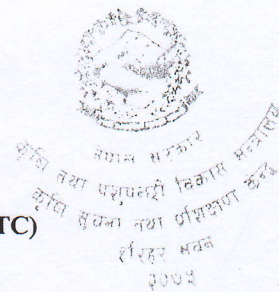 नेपाल सरकार
कृषि तथा पशुपन्छी विकास मन्त्रालय
कृषि सूचना तथा प्रशिक्षण केन्द्र
TC)
हरिहर भवन
२०७५